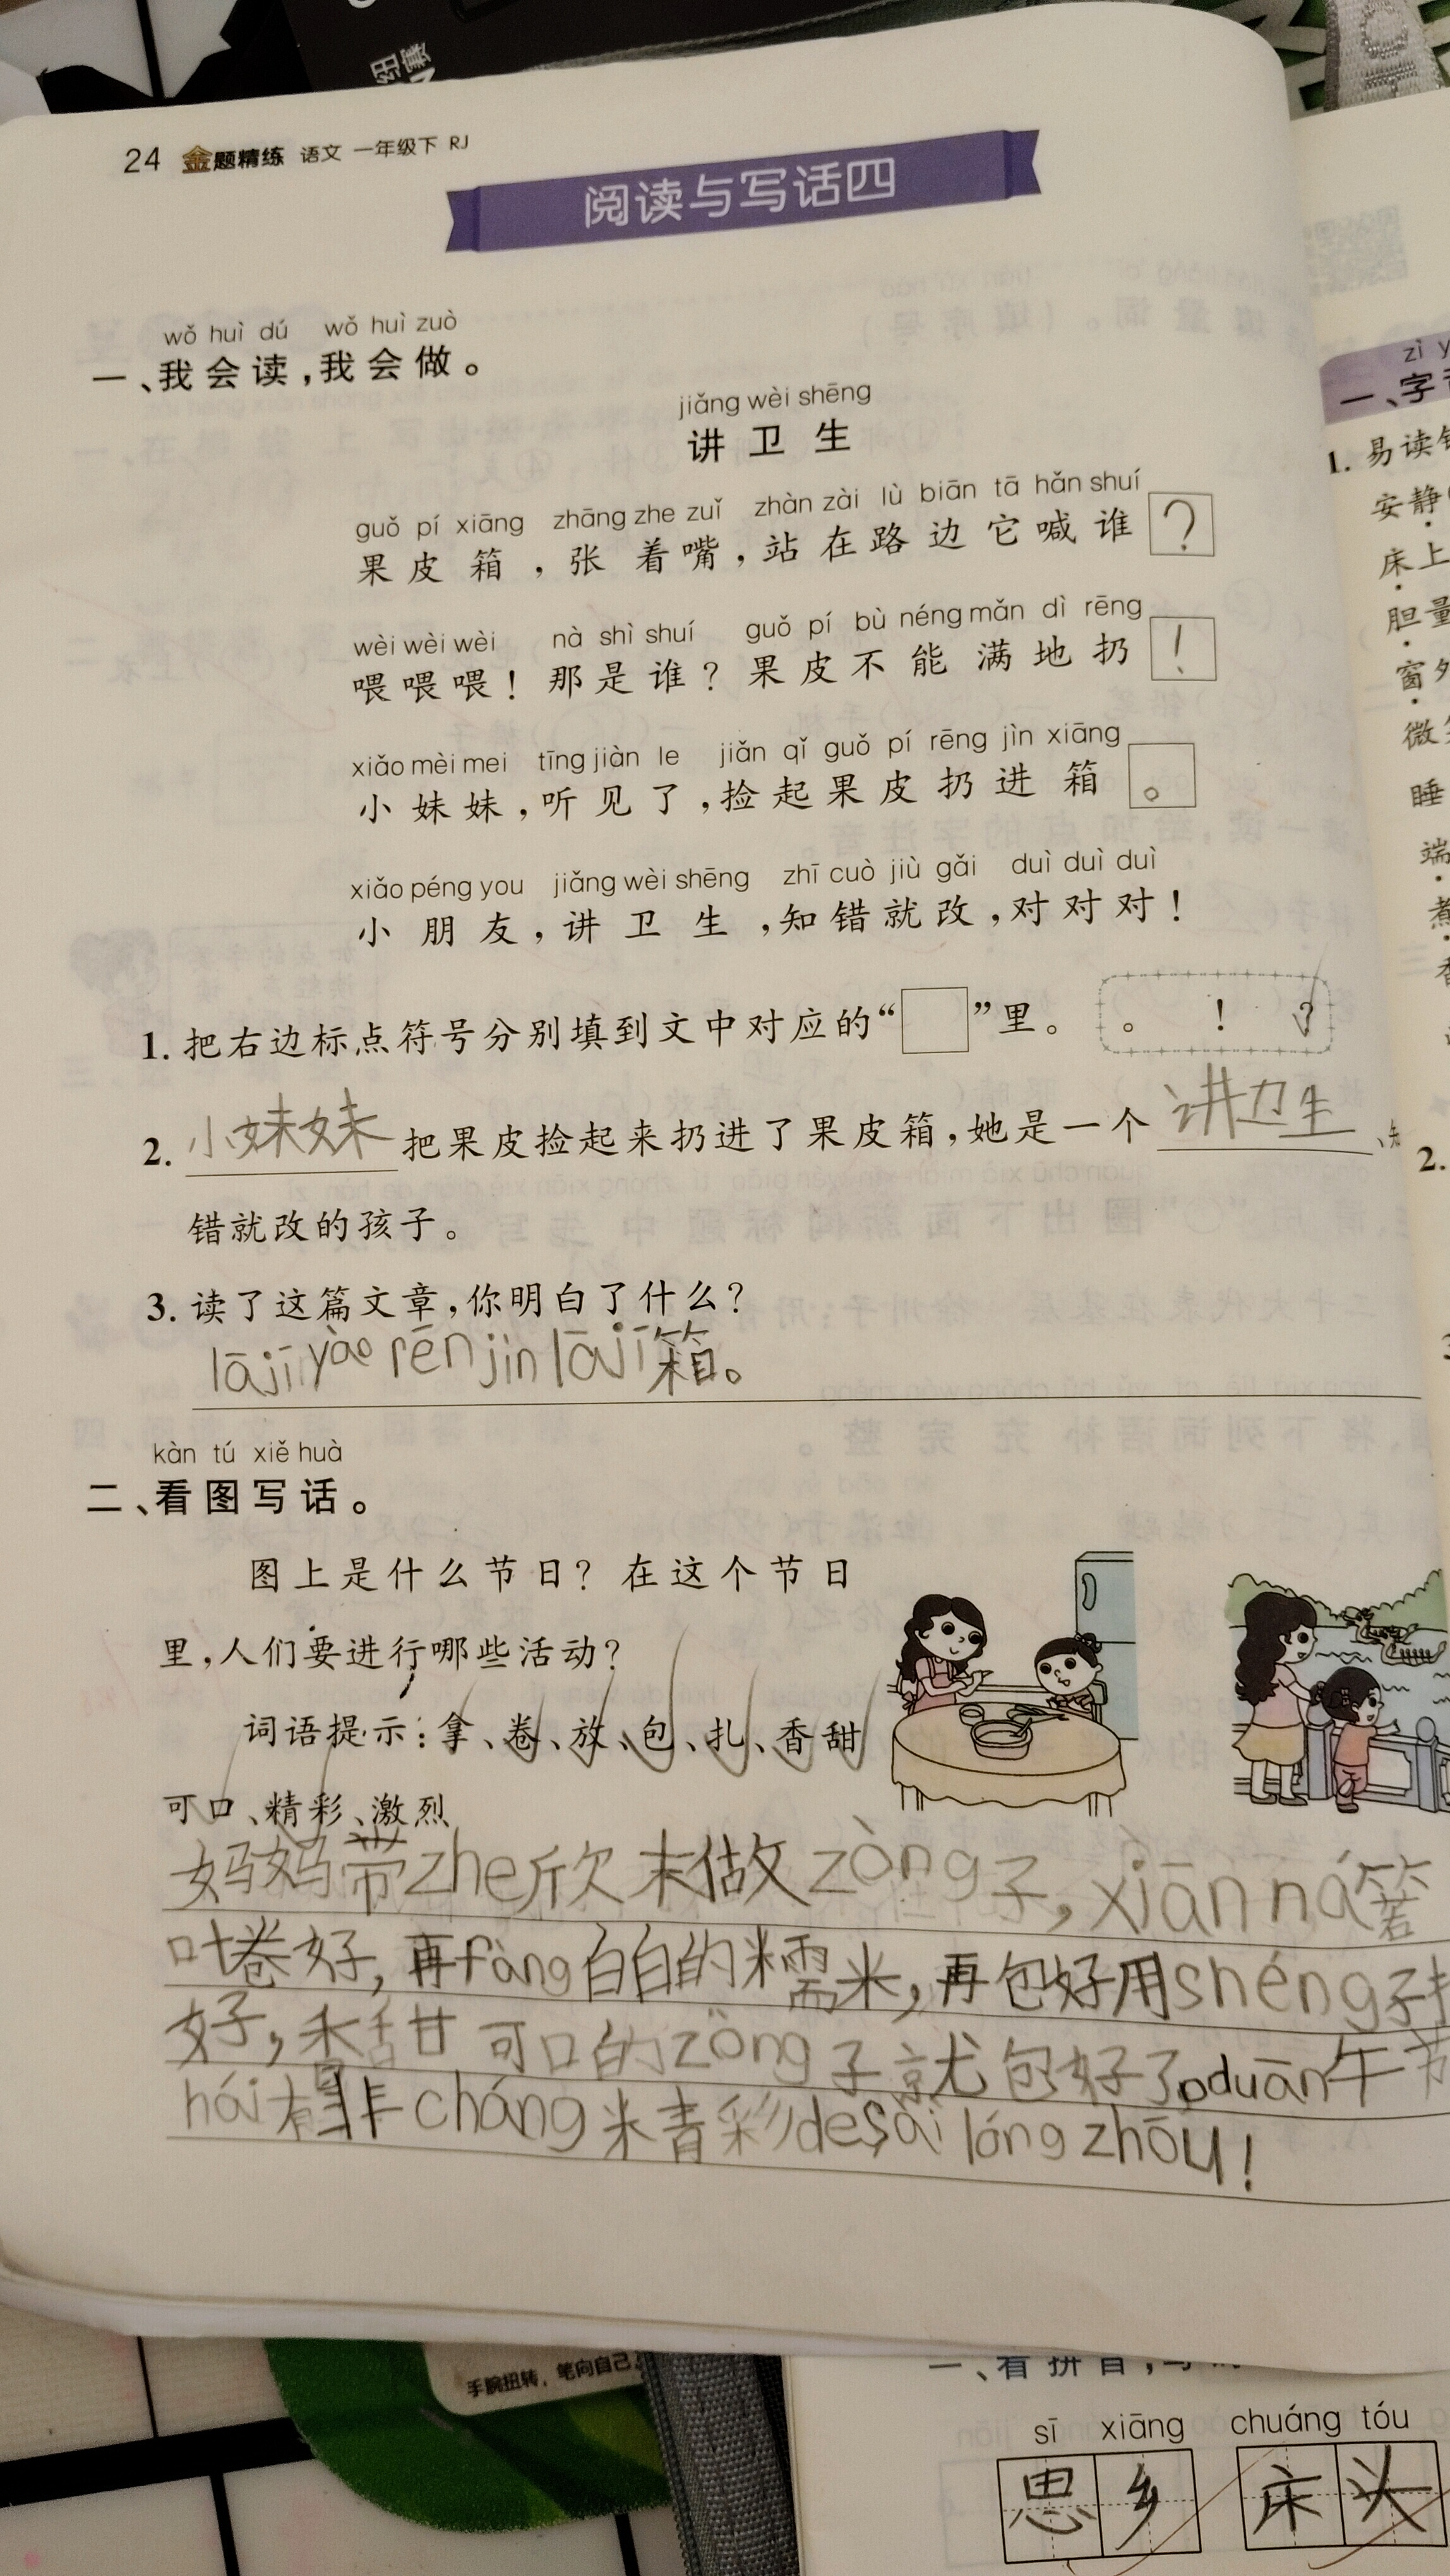 24 金题精练 语文 一年级下 RJ
阅读与写话四
wǒ huì dú wǒ huì zuò
一、我会读,我会做。
jiǎng wèi shēng
讲卫生
guǒ pí xiāng zhāng zhe zuǐ zhàn zài lù biān tā hǎn shuí
果皮箱,张着嘴,站在路边它喊谁?
wèi wèi wèi nà shì shuí guǒ pí bù néng mǎn dì rēng
喂喂喂!那是谁?果皮不能满地扔!
xiǎo mèi mei tīng jiàn le jiǎn qǐ guǒ pí rēng jìn xiāng
小妹妹,听见了,捡起果皮扔进箱。
xiǎo péng you jiǎng wèi shēng zhī cuò jiù gǎi duì duì duì
小朋友,讲卫生,知错就改,对对对!
1. 把右边标点符号分别填到文中对应的“□”里。 。 ! ?
2. 小妹妹把果皮捡起来扔进了果皮箱,她是一个讲卫生、知
错就改的孩子。
3. 读了这篇文章,你明白了什么?
lājī yào rēn jìn lājī箱。
kàn tú xiě huà
二、看图写话。
图上是什么节日?在这个节日
里,人们要进行哪些活动?
词语提示:拿、卷、放、包、扎、香甜
可口、精彩、激烈
妈妈带zhe欣未做zòng子,xiān ná箬
叶卷好,再fàng白白的糯米,再包好用shéng子扎
好,香甜可口的zòng子就包好了。duān午节
hái有非cháng精彩de sài lóng zhōu!
zì y
一、字
1. 易读错
安静
床上
胆量
窗外
微笑
睡
端
煮
2.
3
手腕扭转,笔向自己
一、看拼音,写
sī xiāng chuáng tóu
思乡 床头